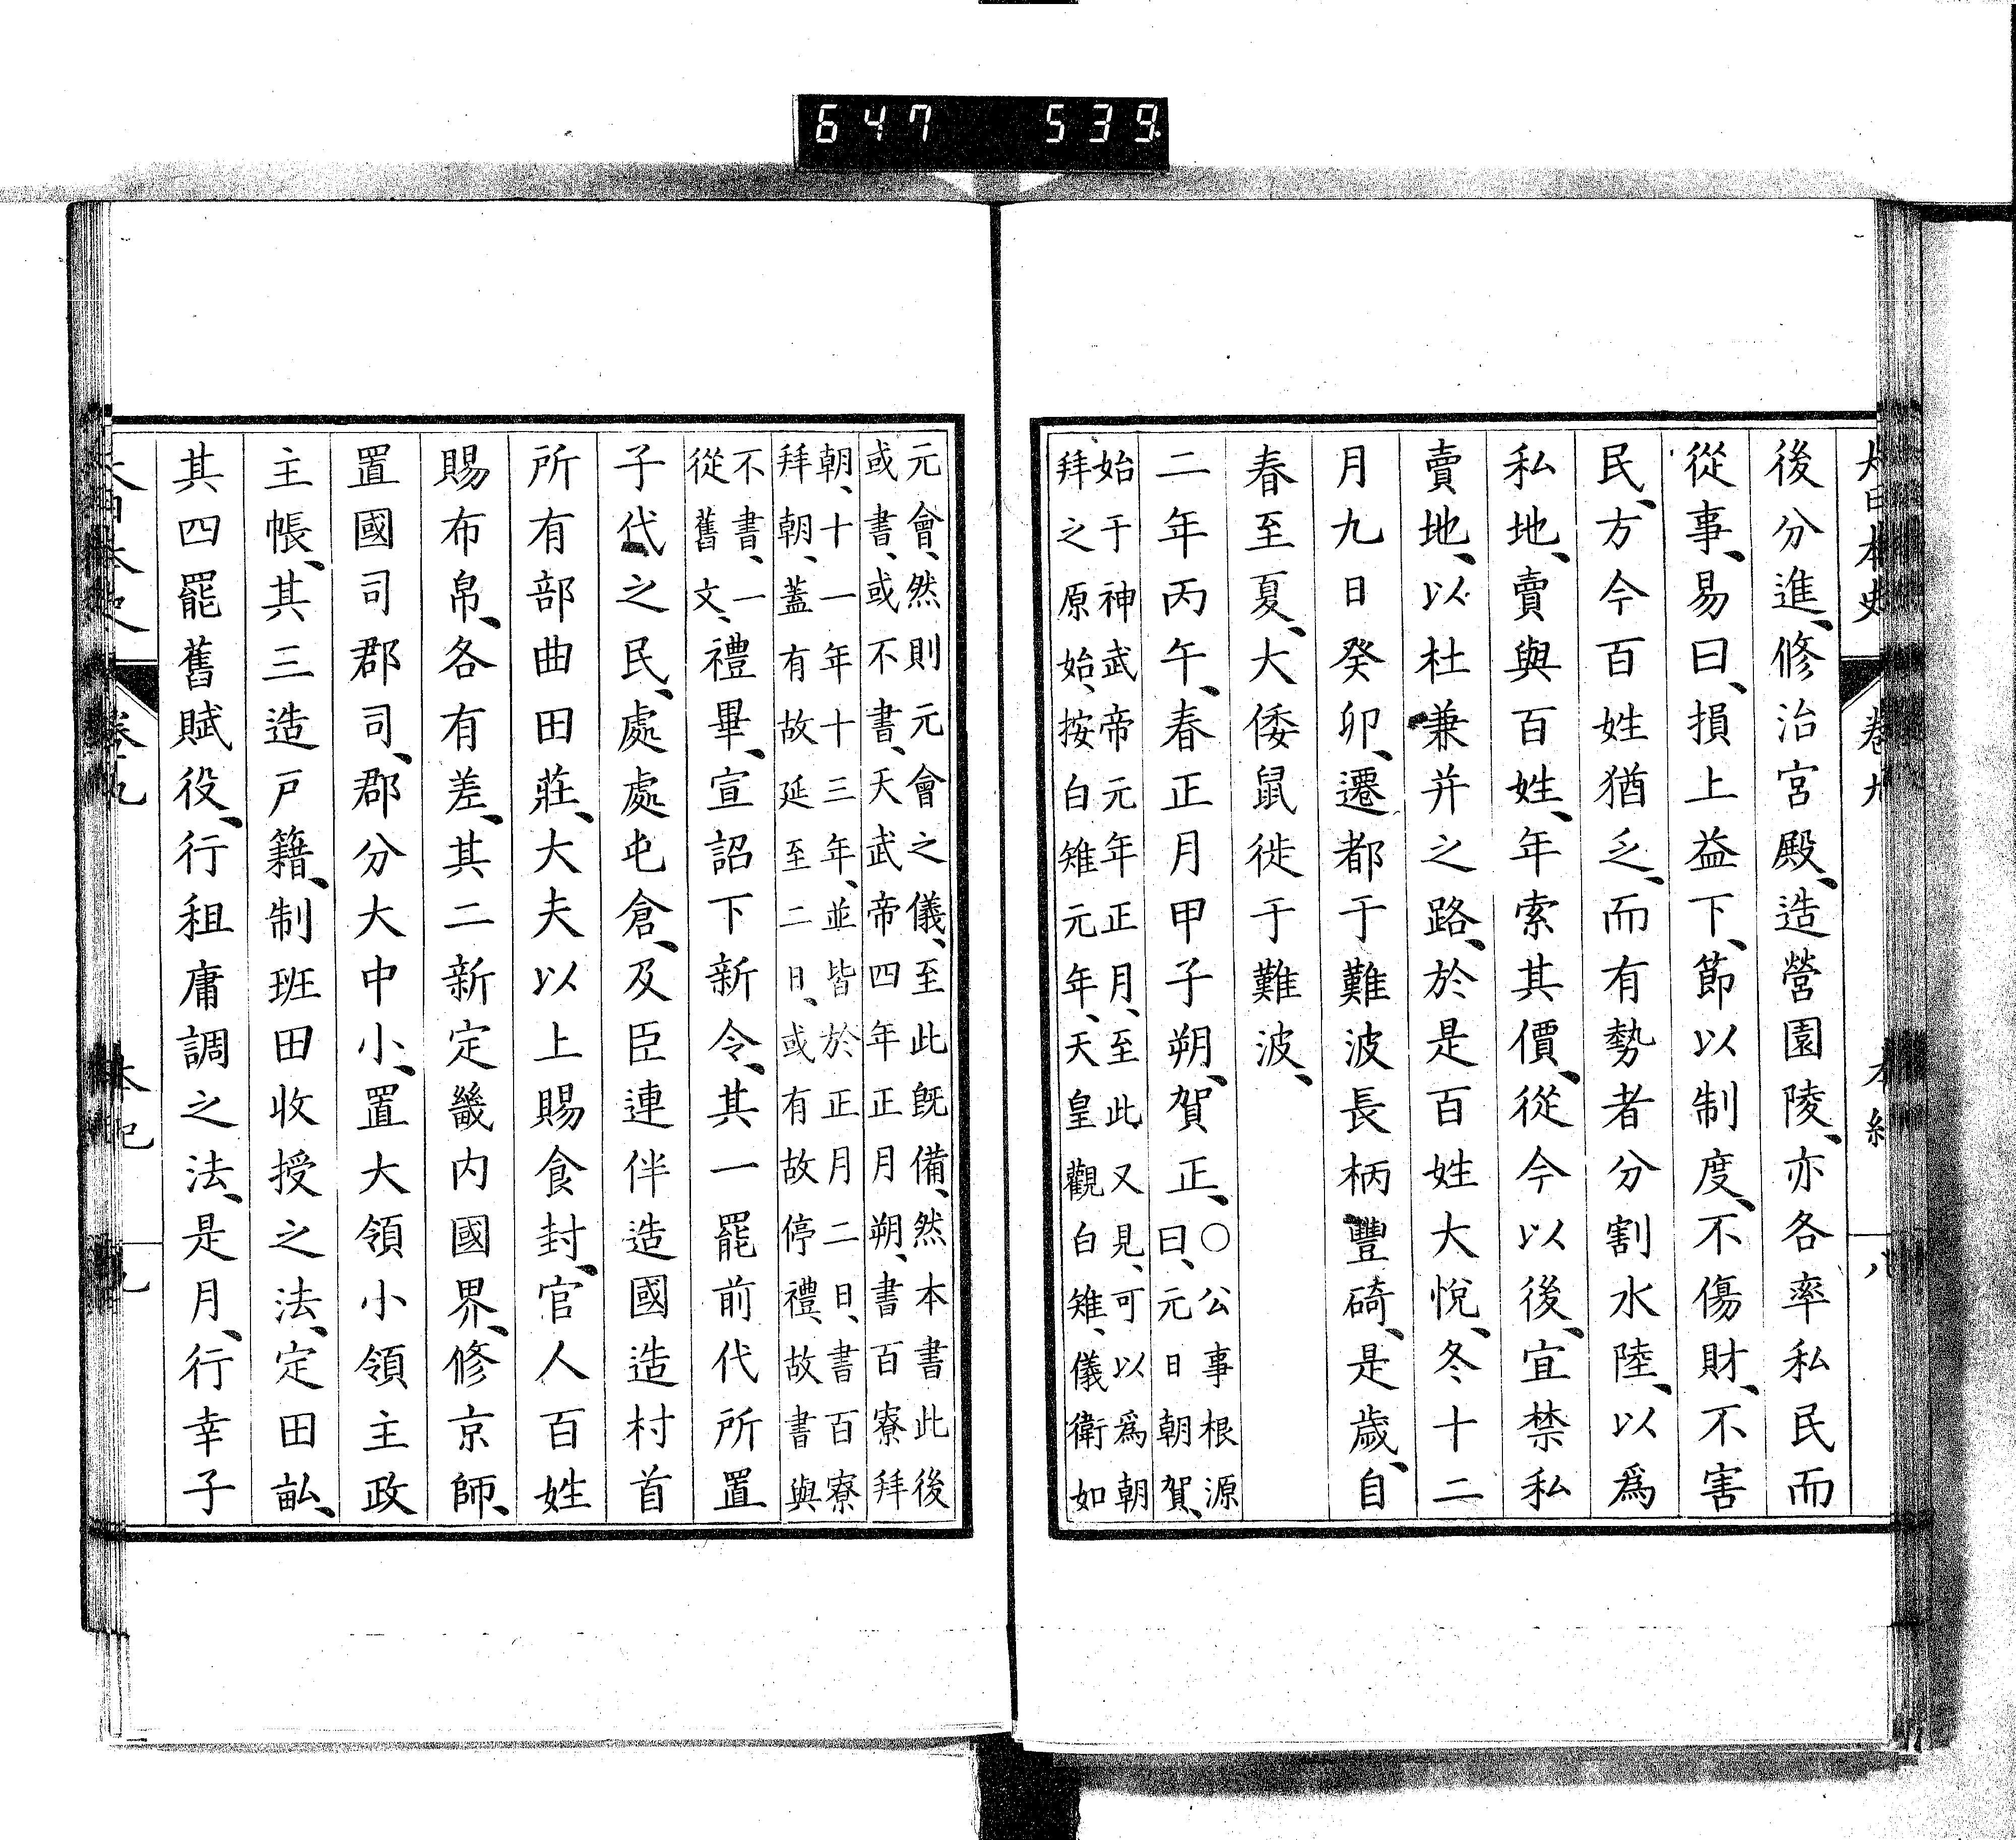 647 539
大日本史 卷九 本紀 八
後分進、修治宮殿、造營園陵、亦各率私民而
從事、易曰、損上益下、節以制度、不傷財、不害
民、方今百姓猶乏、而有勢者分割水陸、以爲
私地、賣與百姓、年索其價、從今以後、宜禁私
賣地、以杜兼并之路、於是百姓大悅、冬十二
月九日癸卯、遷都于難波長柄豐碕、是歲、自
春至夏、大倭鼠徙于難波、
二年丙午、春正月甲子朔、賀正、
○公事根源
曰、元日朝賀、
始于神武帝元年正月、至此又見、可以爲朝
拜之原始、按白雉元年、天皇觀白雉、儀衛如
元會、然則元會之儀、至此既備、然本書此後
或書、或不書、天武帝四年正月朔、書百寮拜
朝、十一年十三年、並皆於正月二日、書百寮
拜朝、蓋有故延至二日、或有故停禮、故書與
不書、一
從舊文、
禮畢、宣詔下新令、其一罷前代所置
子代之民、處處屯倉、及臣連伴造國造村首
所有部曲田莊、大夫以上賜食封、官人百姓
賜布帛、各有差、其二新定畿内國界、修京師、
置國司郡司、郡分大中小、置大領小領主政
主帳、其三造戸籍、制班田收授之法、定田畝、
其四罷舊賦役、行租庸調之法、是月、行幸子
大日本史 卷九 本紀 九